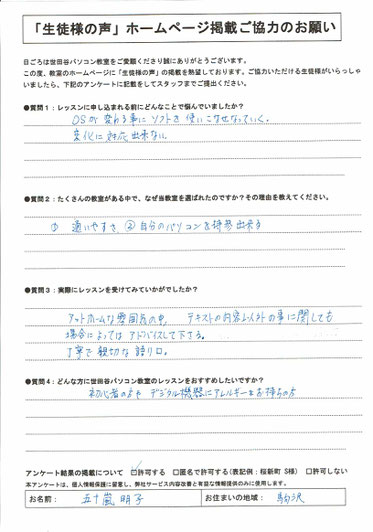 「生徒様の声」ホームページ掲載ご協力のお願い
日ごろは世田谷パソコン教室をご愛顧くださり誠にありがとうございます。
この度、教室のホームページに「生徒様の声」の掲載を熱望しております。ご協力いただける生徒様がいらっしゃ
いましたら、下記のアンケートに記載をしてスタッフまでご提出ください。
●質問1：レッスンに申し込まれる前にどんなことで悩んでいましたか？
OSが変わる事にソフトを使いこなせなっていく。
変化に対応出来ない
●質問2：たくさんの教室がある中で、なぜ当教室を選ばれたのですか？その理由を教えてください。
① 通いやすさ ② 自分のパソコンを持参出来る
●質問3：実際にレッスンを受けてみていかがでしたか？
アットホームな雰囲気の中、テキストの内容以外の事に関しても
場合によってはアドバイスして下さる。
丁寧で親切な語り口。
●質問4：どんな方に世田谷パソコン教室のレッスンをおすすめしたいですか？
初心者の方や デジタル機器にアレルギーをお持ちの方
アンケート結果の掲載について □許可する □匿名で許可する（表記例：桜新町 S様） □許可しない
本アンケートは、個人情報保護に留意し、弊社サービス内容改善と有益な情報提供のみに使用します。
お名前： 五十嵐 明子 お住まいの地域： 駒沢